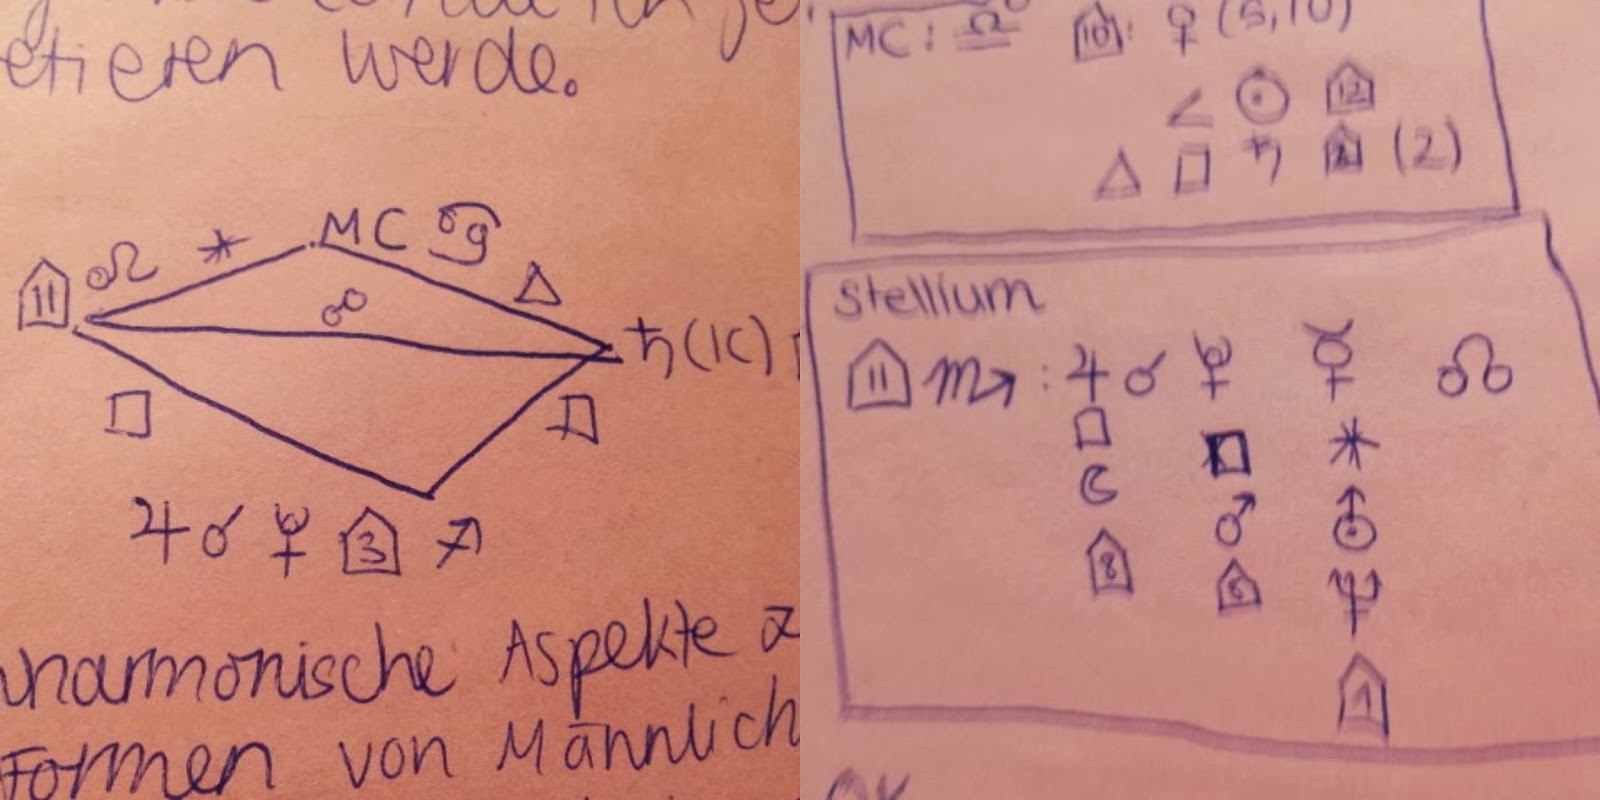 etieren werde.
MC ♋
11 ♌ ⚹ △
☍
♄ (IC)
□ □
♃ ☌ ♇ 3 ♐
harmonische Aspekte z
Formen von Männlich
MC: ♎ 10: ♀ (5,10)
∠ ☉ 12
△ □ ♄ (2)
Stellium
11 ♏ ♐ : ♃ ☌ ♇ ☿ ☊
□ □ ⚹
☾ ♂ ⛢
8 ♆
1